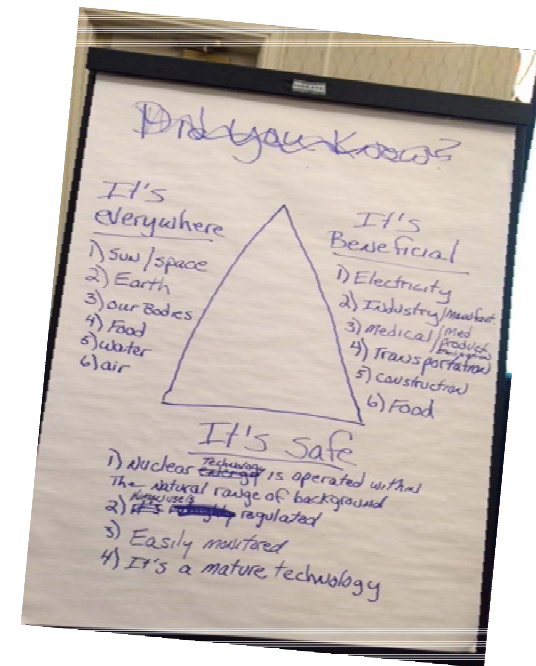 Did you know?
It's
everywhere
1) Sun/space
2) Earth
3) our Bodies
4) Food
5) water
6) air
It's
Beneficial
1) Electricity
2) Industry/
3) Medical/med
product
4) Transportation
5) construction
6) Food
It's safe
1) Nuclear Technology is operated within
The natural range of background
2) regulated
3) Easily monitored
4) It's a mature technology